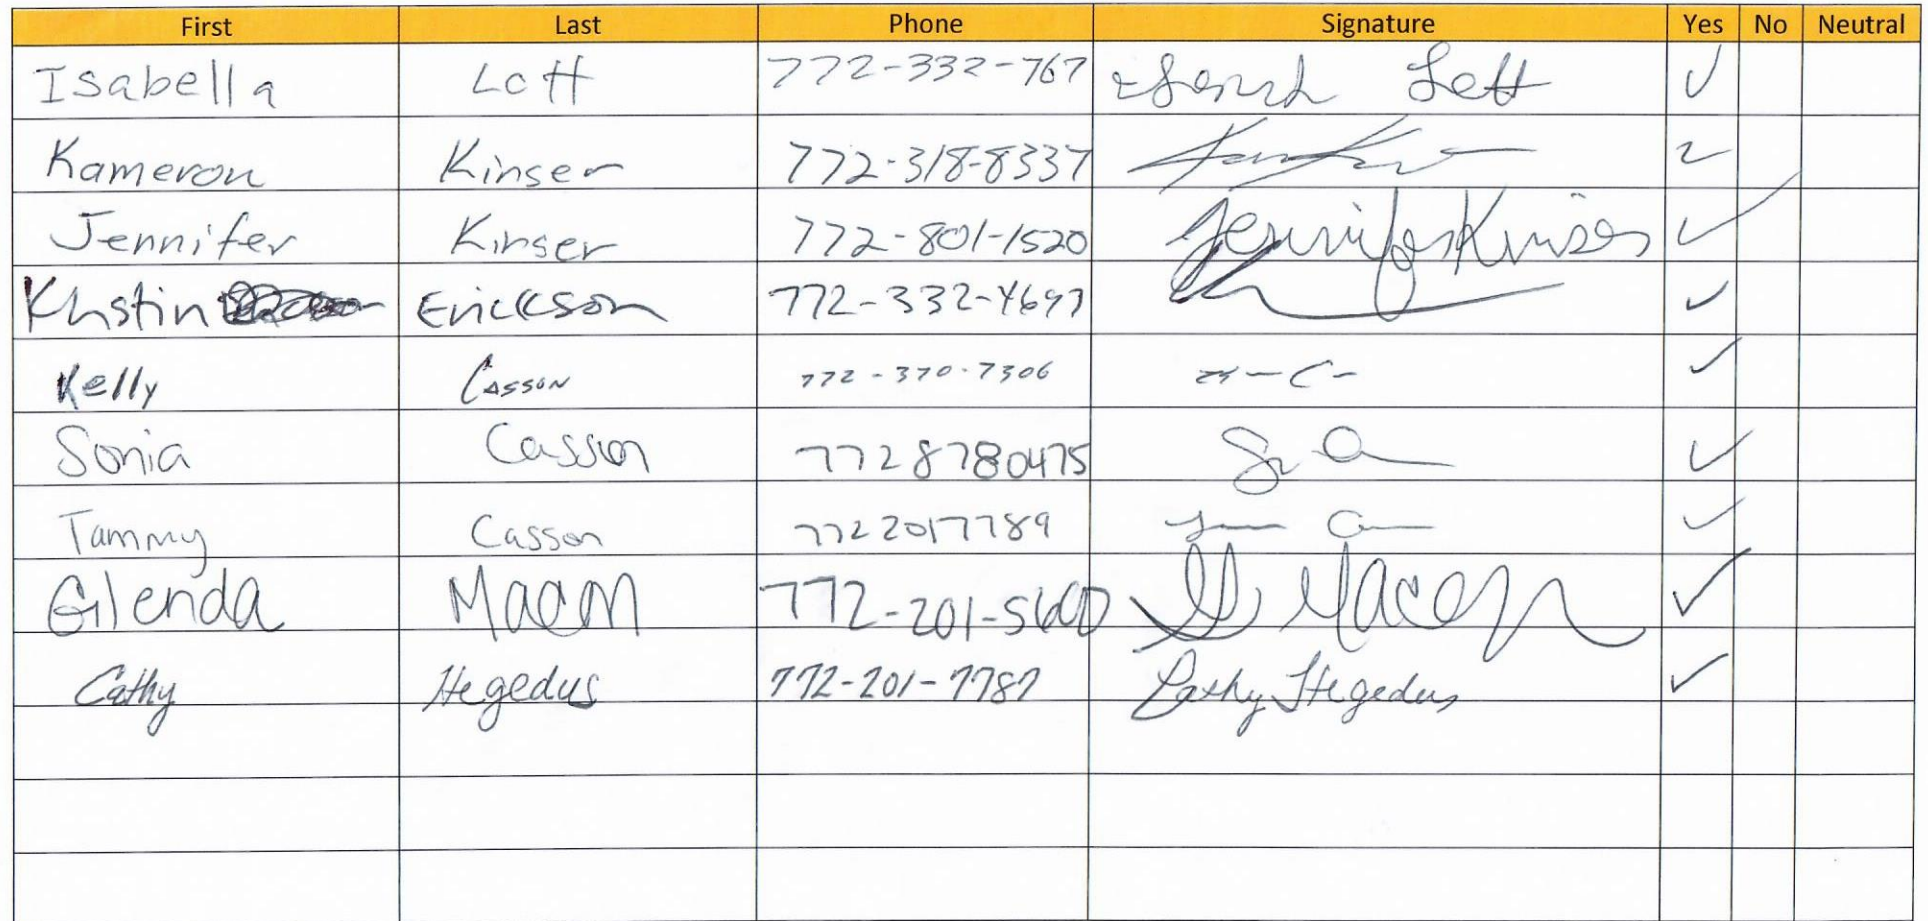 First Last Phone Signature Yes No Neutral
Isabella Lott 772-332-767 Lott ✓
Kameron Kinser 772-318-8337 ✓
Jennifer Kinser 772-801-1520 Jennifer Kinser ✓
Khstin Erickson 772-332-4697 ✓
Kelly Casson 772-370-7306 ✓
Sonia Casson 7728780475 ✓
Tammy Casson 7722017789 ✓
Glenda Macon 772-201-5600 Macon ✓
Cathy Hegedus 772-201-7787 Cathy Hegedus ✓